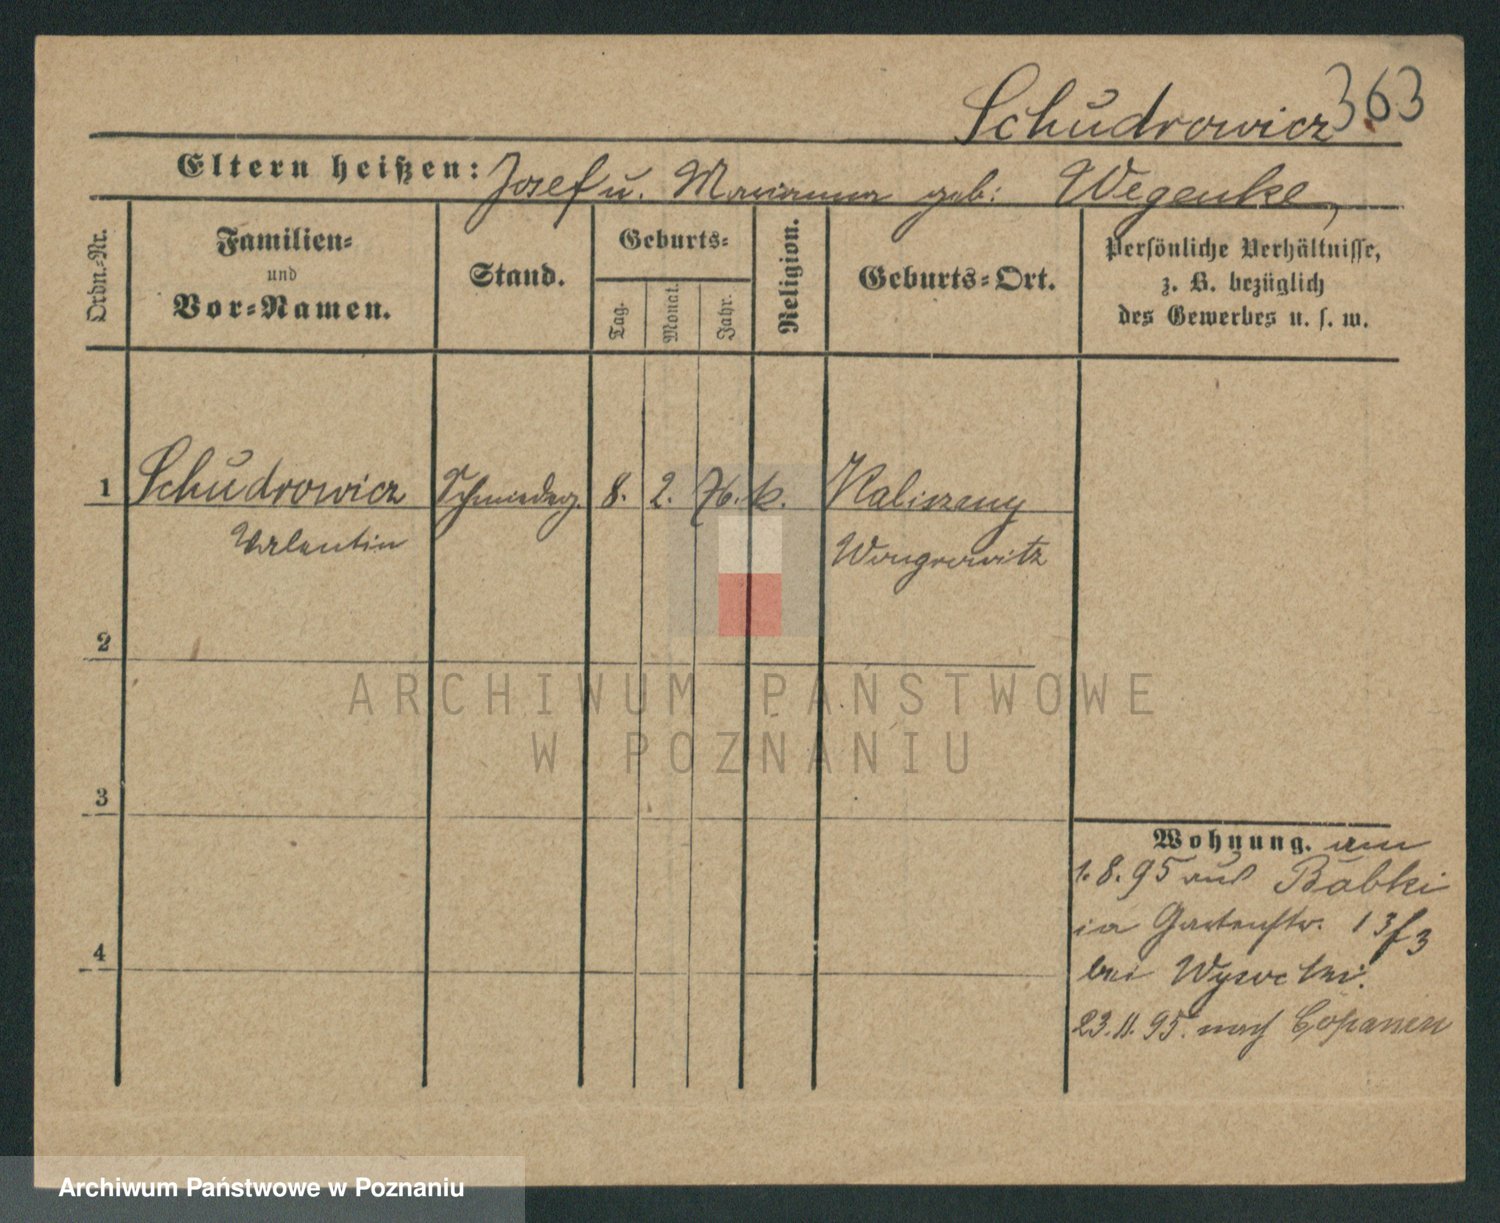 363
Schudrowicz
Eltern heißen: Josef u. Marianna geb: Wegenke,
Ordn.-Nr.
Familien-
und
Vor-Namen.
Stand.
Geburts-
Tag.
Monat.
Jahr.
Religion.
Geburts-Ort.
Persönliche Verhältnisse,
z. B. bezüglich
des Gewerbes u. s. w.
1 Schudrowicz 8. 2. 76. k. Kaliszany
Valentin Wongrowitz
2
ARCHIWUM PAŃSTWOWE
W POZNANIU
3
4
Wohnung. am
1.8.95 aus Babki
in Gartenstr. 13
bei Wysocki.
23.11.95. nach
Archiwum Państwowe w Poznaniu